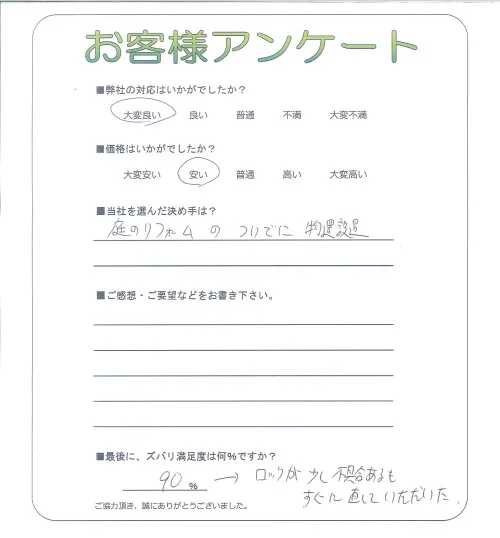 お客様アンケート
■弊社の対応はいかがでしたか？
大変良い 良い 普通 不満 大変不満
■価格はいかがでしたか？
大変安い 安い 普通 高い 大変高い
■当社を選んだ決め手は？
庭のリフォームの ついでに 物置設置
■ご感想・ご要望などをお書き下さい。
■最後に、ズバリ満足度は何%ですか？
90 % → ロックが少し不具合あるも
すぐに直していただいた.
ご協力頂き、誠にありがとうございました。